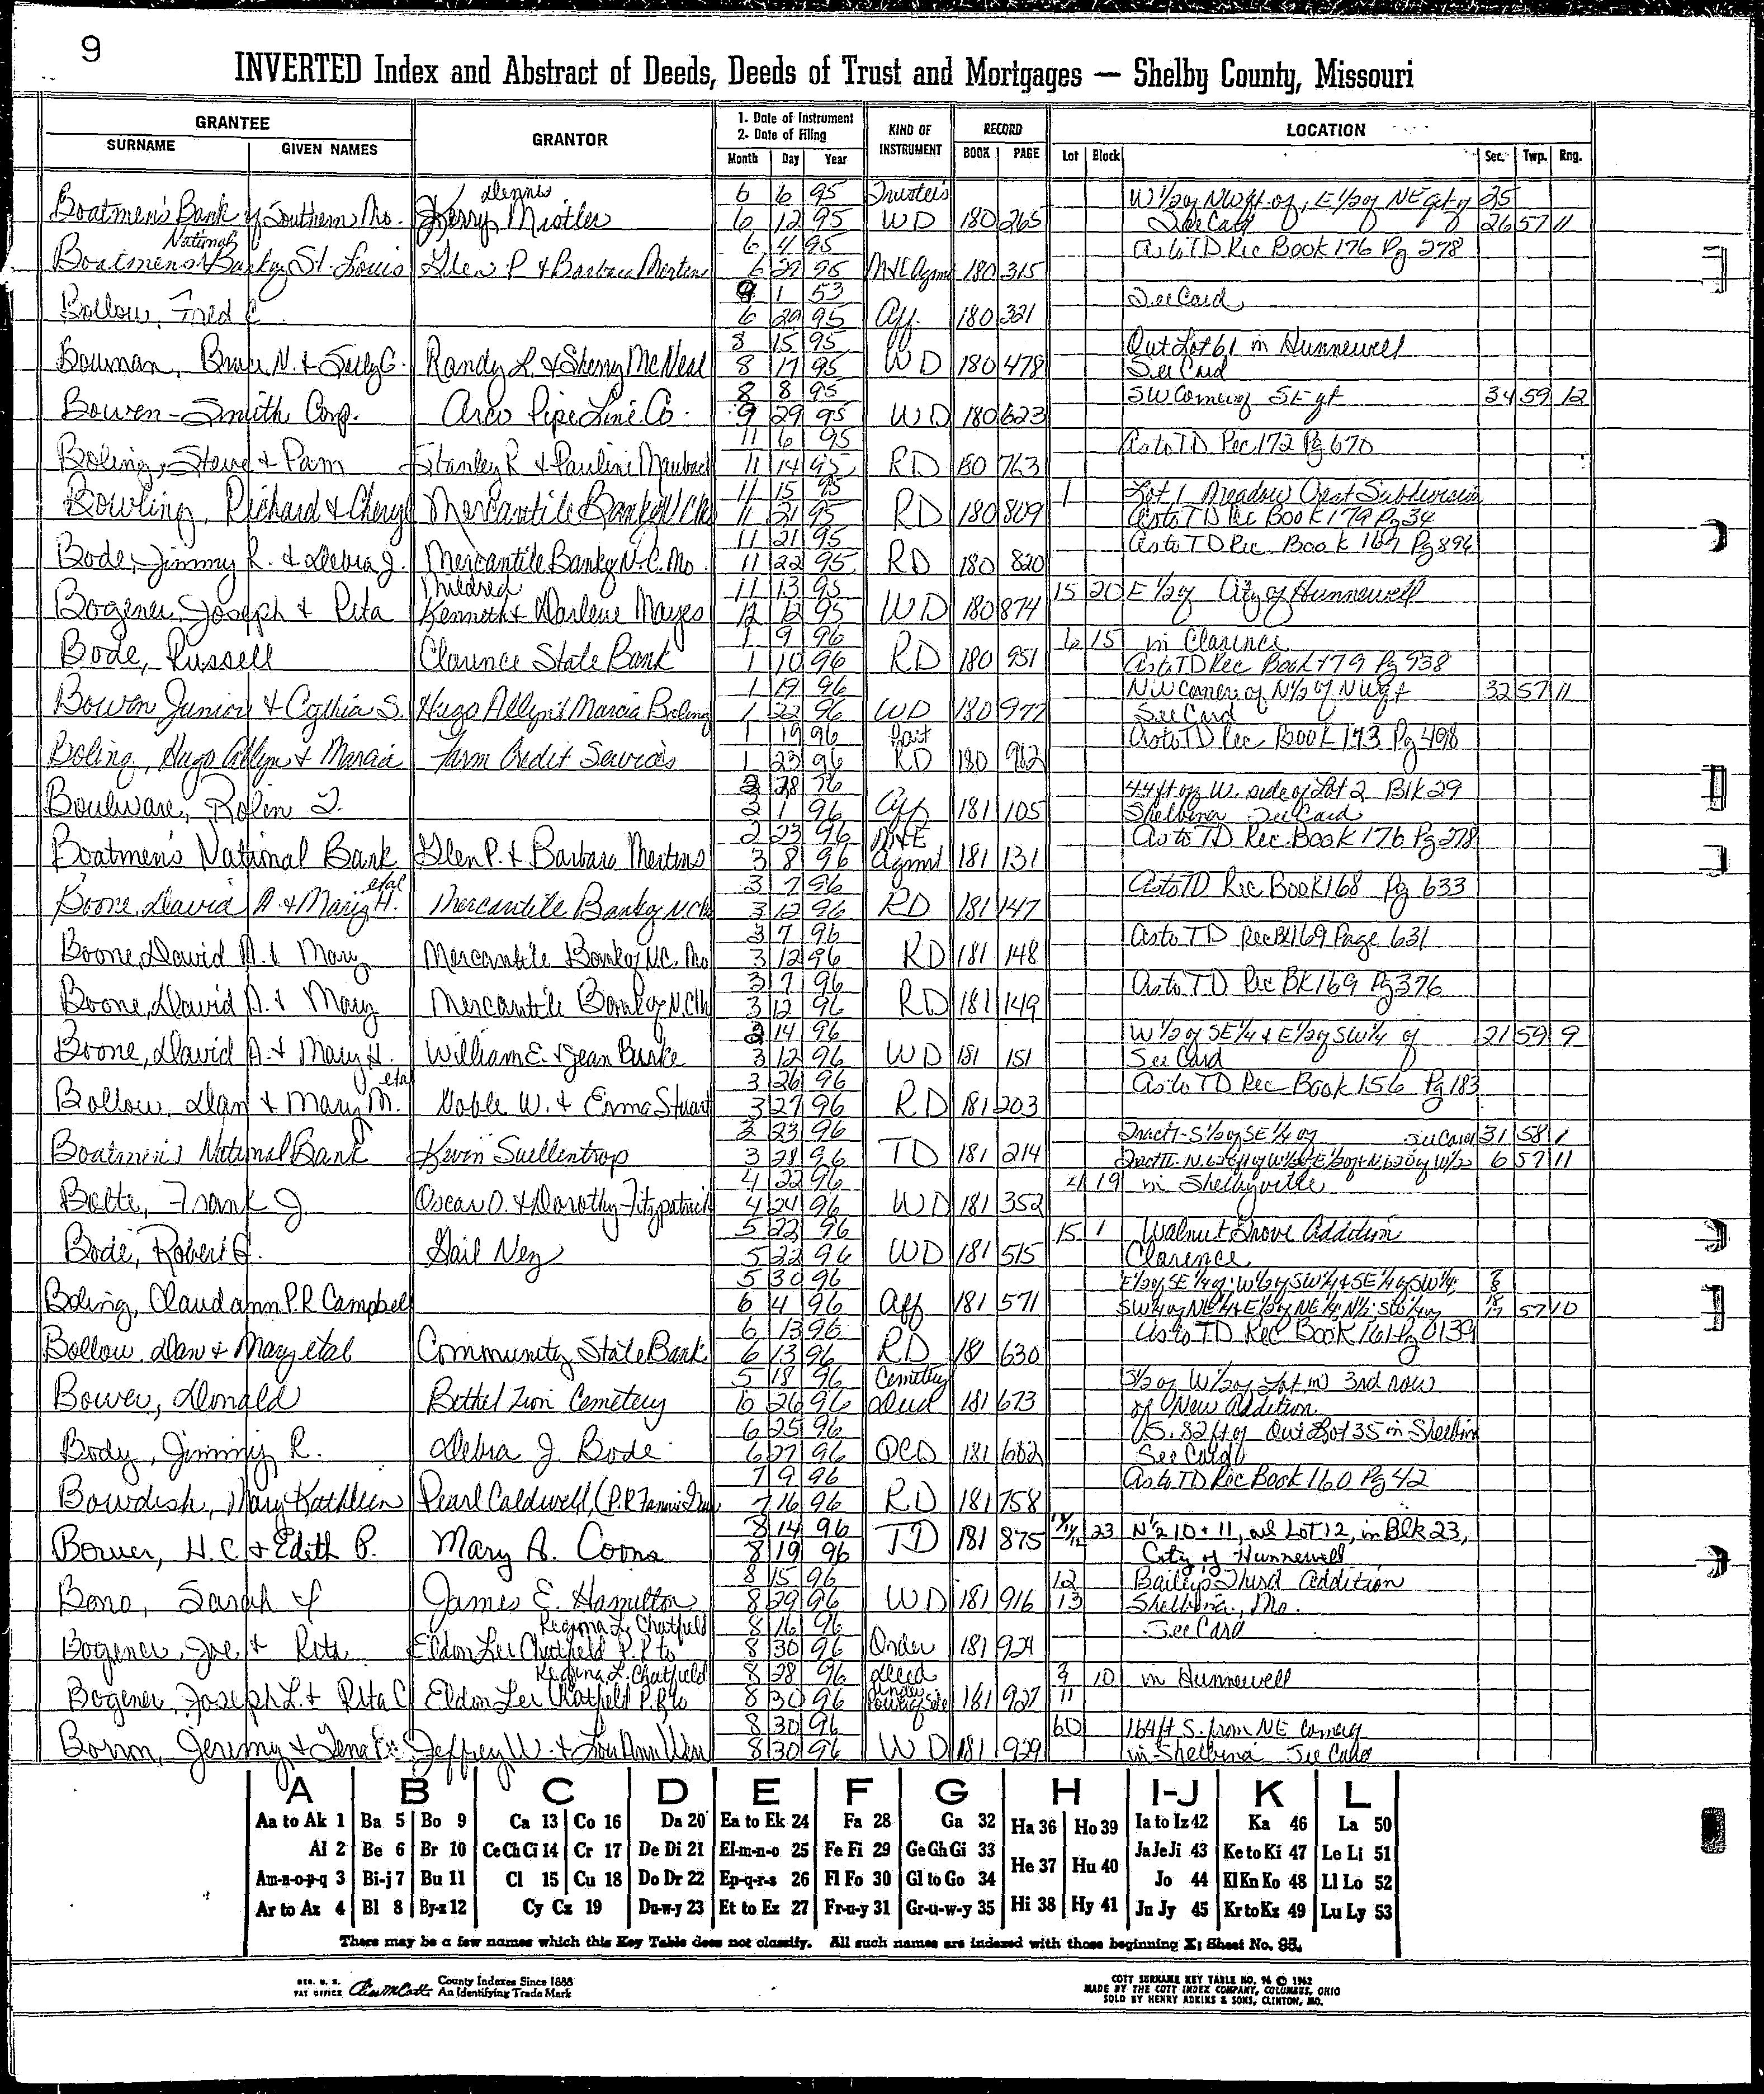 9
INVERTED Index and Abstract of Deeds, Deeds of Trust and Mortgages — Shelby County, Missouri
GRANTEE
SURNAME GIVEN NAMES
GRANTOR
1. Date of Instrument
2. Date of Filing
Month Day Year
KIND OF INSTRUMENT
RECORD
BOOK PAGE
LOCATION
Lot Block Sec. Twp. Rng.
Dennis 6 6 95 Trustee's W 1/2 of NW qt of, E 1/2 of NE qt of 25
Boatmen's Bank of Southern Mo. Mistler 6 12 95 WD 180 265 See Card 26 57 11
National 6 4 95 As to TD Rec Book 176 Pg 278
Boatmens Bank of St. Louis Glen P & Barbara Mertens 6 29 95 Agmt 180 315
1 53 See Card
Bollow, Fred C 6 29 95 Aff. 180 321
8 15 95 Out Lot 61 in Hunnewell
Bouman, Bruce N. & G. Randy L. & Sherry McNeal 8 17 95 WD 180 478 See Card
8 8 95 SW Corner of SE qt 34 59 12
Bowen-Smith Corp. Arco Pipe Line Co. 9 29 95 WD 180 623
11 6 95 As to TD Rec. 172 Pg 670
Boling, Steve & Pam Stanley R & Pauline 11 14 95 RD 180 763
11 15 95 1 Lot 1 Meadow Crest Subdivision
Bowling, Richard & Cheryl Mercantile Bank of N C Mo 11 21 95 RD 180 809 As to TD Rec Book 179 Pg 34
11 21 95 As to TD Rec Book 169 Pg 896
Bode, Jimmy R. & Debra J. Mercantile Bank of N.C. Mo. 11 22 95 RD 180 820
Mildred 11 13 95 15 20 E 1/2 of City of Hunnewell
Bogener, Joseph & Rita Kenneth & Darlene Mayes 12 12 95 WD 180 874
1 9 96 6 15 in Clarence
Bode, Russell Clarence State Bank 1 10 96 RD 180 951 As to TD Rec Book 179 Pg 938
1 19 96 NW Corner of N 1/2 of NW qt 32 57 11
Bowen Junior & Cythia S. Hugo Allyn & Marcia Boling 1 22 96 WD 180 977 See Card
1 19 96 Part As to TD Rec Book 173 Pg 498
Boling, Hugo Allyn & Marcia Farm Credit Services 1 23 96 RD 180 982
28 96 44 ft off W. side of Lot 2 Blk 29
Boulware, Rolin T. 3 1 96 Aff 181 105 Shelbina See Card
2 23 96 As to TD Rec. Book 176 Pg 278
Boatmen's National Bank Glen P. & Barbara Mertens 3 8 96 Agmt 181 131
etal 3 7 96 As to TD Rec Book 168 Pg 633
Boone, David A. & Mary H. Mercantile Bank of N.C. Mo 3 12 96 RD 181 147
3 7 96 As to TD Rec Bk 169 Page 631
Boone, David A. & Mary Mercantile Bank of N.C. Mo 3 12 96 RD 181 148
3 7 96 As to TD Rec Bk 169 Pg 376
Boone, David A. & Mary Mercantile Bank of N.C Mo 3 12 96 RD 181 149
14 96 W 1/2 of SE 1/4 & E 1/2 of SW 1/4 of 21 59 9
Boone, David A. & Mary H. William E. & Jean Burke 3 12 96 WD 181 151 See Card
etal 3 26 96 As to TD Rec Book 156 Pg 183
Bollow, Dan & Mary M. Noble W. & Erma Stuart 3 27 96 RD 181 203
23 96 Tract I - S 1/2 of SE 1/4 of See Card 31 58
Boatmen's National Bank Kevin Suellentrop 3 28 96 TD 181 214 6 57 11
4 22 96 4 19 in Shelbyville
Bolte, Frank J. Oscar O. & Dorothy Fitzpatrick 4 24 96 WD 181 352
5 22 96 15 1 Walnut Grove Addition
Bode, Robert G. Gail Ney 5 22 96 WD 181 515 Clarence
5 30 96 E 1/2 of SE 1/4 of; W 1/2 of SW 1/4 & SE 1/4 of SW 1/4;
Boling, Claud ann P.R. Campbell 6 4 96 Aff 181 571 SW 1/4 of NE 1/4 & E 1/2 of NE 1/4; N 1/2; SW 1/4 of 17 57 10
6 13 96 As to TD Rec Book 161 Pg 0139
Bollow Dan & Mary etal Community State Bank 6 13 96 RD 181 630
5 18 96 Cemetery S 1/2 of W 1/2 of Lot in 3rd row
Bower, Donald Bethel Zion Cemetery 6 26 96 Deed 181 673 of New Addition
6 25 96 S. 82 ft of Out Lot 35 in Shelbina
Body, Jimmy R. Debra J. Bode 6 27 96 QCD 181 682 See Card
7 9 96 As to TD Rec Book 160 Pg 42
Bowdish, Mary Kathleen Pearl Caldwell, (P.R. Fannie 7 16 96 RD 181 758
8 14 96 23 N 1/2 10 & 11, all Lot 12, in Blk 23,
Bower, H.C. & Edith P. Mary A. Coons 8 19 96 TD 181 875 City of Hunnewell
8 15 96 12 Bailey's Third Addition
Bono, Sarah James E. Hamilton 8 29 96 WD 181 916 13 Shelbina, Mo.
Regina L. Chatfield 8 16 96 See Card
Bogener, Joe & Rita Eldon Lee Chatfield P.R to 8 30 96 Order 181 924
Regina L. Chatfield 8 28 96 Deed 10 in Hunnewell
Bogener, Joseph L. & Rita C Eldon Lee Chatfield P.R to 8 30 96 under Power of Sale 181 927 11
8 30 96 60 164 ft S. from NE Corner of
Jeremy & Jeffrey W. & Lou Ann 8 30 96 WD 181 929 in Shelbina See Card
A B C D E F G H I-J K L
Aa to Ak 1 Ba 5 Bo 9 Ca 13 Co 16 Da 20 Ea to Ek 24 Fa 28 Ga 32 Ha 36 Ho 39 Ia to Iz 42 Ka 46 La 50
Al 2 Be 6 Br 10 Ce Ch Ci 14 Cr 17 De Di 21 El-m-n-o 25 Fe Fi 29 Ge Gh Gi 33 He 37 Hu 40 Ja Je Ji 43 Ke to Ki 47 Le Li 51
Am-n-o-p-q 3 Bi-j 7 Bu 11 Cl 15 Cu 18 Do Dr 22 Ep-q-r-s 26 Fl Fo 30 Gl to Go 34 Jo 44 Kl Kn Ko 48 Ll Lo 52
Ar to Az 4 Bl 8 By-z 12 Cy Cz 19 Du-w-y 23 Et to Ez 27 Fr-u-y 31 Gr-u-w-y 35 Hi 38 Hy 41 Ju Jy 45 Kr to Kz 49 Lu Ly 53
There may be a few names which this Key Table does not classify. All such names are indexed with those beginning X; Sheet No. 95.
REG. U. S. PAT OFFICE County Indexes Since 1888
An Identifying Trade Mark
COTT SURNAME KEY TABLE NO. 96 © 1962
MADE BY THE COTT INDEX COMPANY, COLUMBUS, OHIO
SOLD BY HENRY ADKINS & SONS, CLINTON, MO.